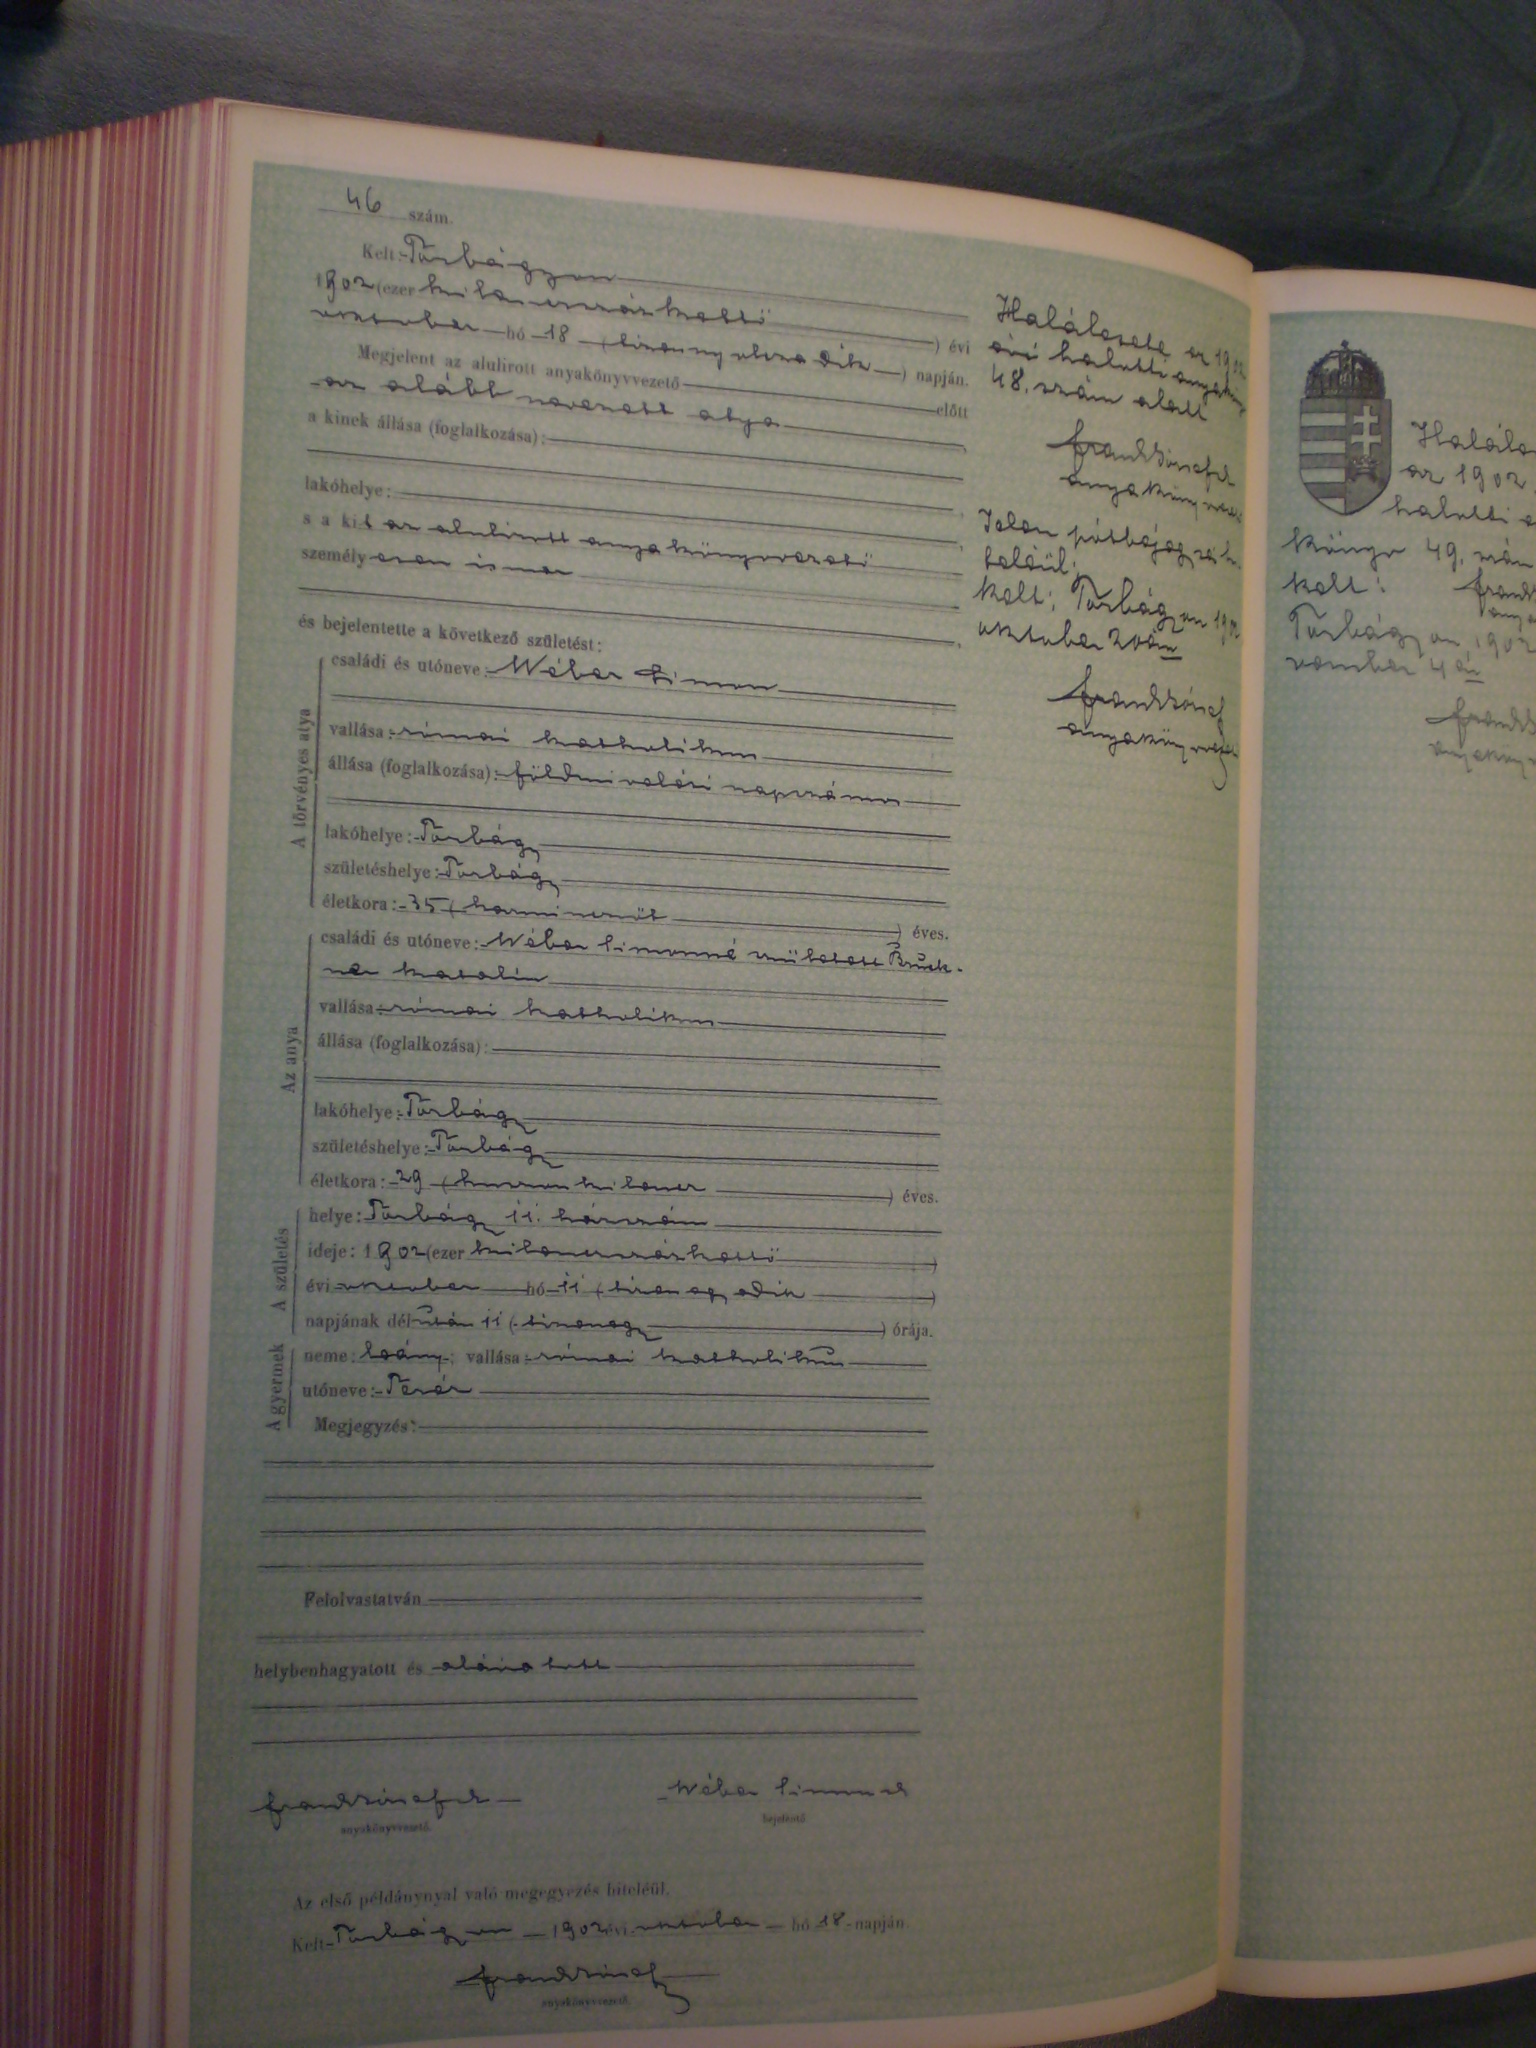 46 szám.
Kelt: Törbágyon
1902 (ezer kilencszázkettő
) évi
oktober hó 18 (tizennyolcadik) napján.
Megjelent az alulirott anyakönyvvezető előtt
az alább nevezett atya
a kinek állása (foglalkozása):
lakóhelye:
s a kit az alulirott anyakönyvvezető
személyesen ismer
és bejelentette a következő születést:
A törvényes atya
családi és utóneve: Wéber Simon
vallása: római katholikus
állása (foglalkozása): földmivelési napszámos
lakóhelye: Törbágy
születéshelye: Törbágy
életkora: 35 (harmincöt) éves.
Az anya
családi és utóneve: Wéber Simonné született Bruck-
ner Katalin
vallása: római katholikus
állása (foglalkozása):
lakóhelye: Törbágy
születéshelye: Törbágy
életkora: 29 (huszonkilenc) éves.
A születés
helye: Törbágy 11. házszám
ideje: 1902 (ezer kilencszázkettő)
évi oktober hó 11 (tizenegyedik)
napjának délután 11 (tizenegy) órája.
A gyermek
neme: leány; vallása: római katholikus
utóneve: Teréz
Megjegyzés:
Felolvastatván
helybenhagyatott és aláiratott
anyakönyvvezető.
Wéber Simon
bejelentő
Az első példánynyal való megegyezés hiteléül.
Kelt Törbágyon 1902 évi oktober hó 18 napján.
anyakönyvvezető.
Halálesete az 1902
évi halotti anyakönyv
48. szám alatt
anyakönyvvezető
Jelen pótbejegyzés hi-
teléül;
Kelt: Törbágyon 1902
oktober 20án
anyakönyvvezető
az 1902
halotti
könyv 49. szám
kelt:
Törbágyon 1902
vember 4én